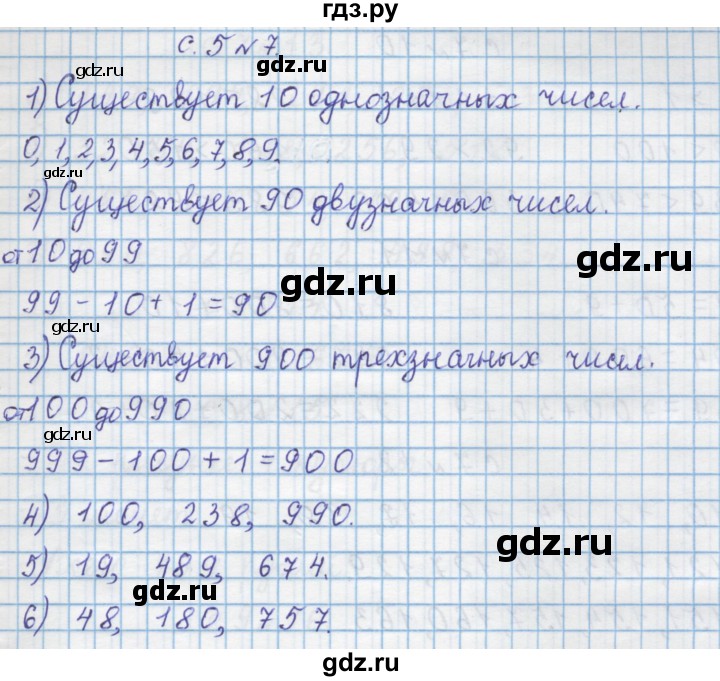 гдз.ру
с. 5 № 7.
gdz.ru
1) Существует 10 однозначных чисел.
gdz.ru
0, 1, 2, 3, 4, 5, 6, 7, 8, 9.
gdz.ru
2) Существует 90 двузначных чисел.
от 10 до 99
gdz.ru
gdz.ru
99 - 10 + 1 = 90
gdz.ru
3) Существует 900 трехзначных чисел.
от 100 до 990
gdz.ru
999 - 100 + 1 = 900
4) 100, 238, 990.
gdz.ru
5) 19, 489, 674.
gdz.ru
6) 48, 180, 757.
gdz.ru